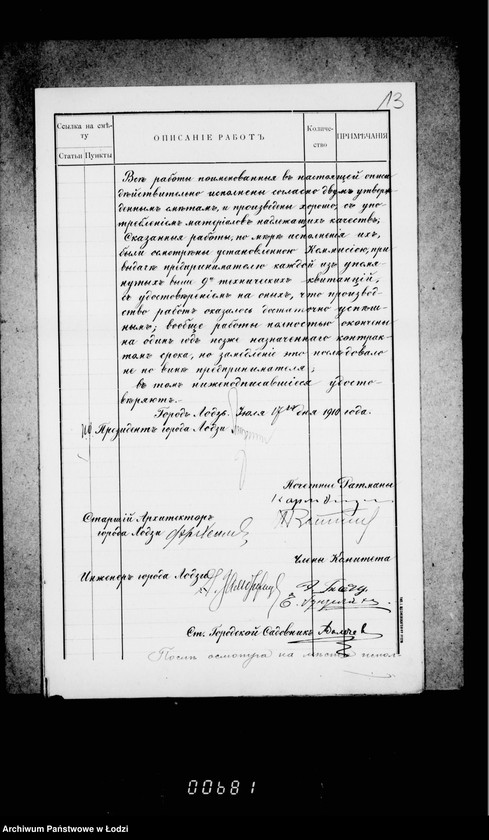 13
Ссылка на смѣ-
ту
Статьи Пункты
ОПИСАНІЕ РАБОТЪ
Количе-
ство
ПРИМѢЧАНІЯ
Всѣ работы поименованныя въ настоящей описи
дѣйствительно исполнены согласно двумъ утверж-
деннымъ смѣтамъ, и произведены хорошо, съ упо-
требленіемъ матеріаловъ надлежащихъ качествъ;
Сказанныя работы, по мѣрѣ исполненія ихъ,
были осмотрены установленною Коммисіею, при
выдачѣ предпринимателю каждой изъ упомя-
нутыхъ выше 9ти техническихъ квитанцій,
съ удостовѣреніемъ на оныхъ, что производ-
ство работъ оказалось достаточно успѣш-
нымъ; вообще работы полностью окончены
на одинъ годъ позже назначеннаго контрак-
томъ срока, но замедленіе это послѣдовало
не по винѣ предпринимателя;
въ томъ нижеподписавшіеся удосто-
вѣряютъ.
Городъ Лодзь. Іюля 17 дня 1910 года.
Президентъ города Лодзи
Почетные Ратманы
Старшій Архитекторъ
города Лодзи
Члены Комитета
Инженеръ города Лодзи
Ст. Городской Садовникъ
Послѣ осмотра на мѣстѣ испол-
00681
Archiwum Państwowe w Łodzi